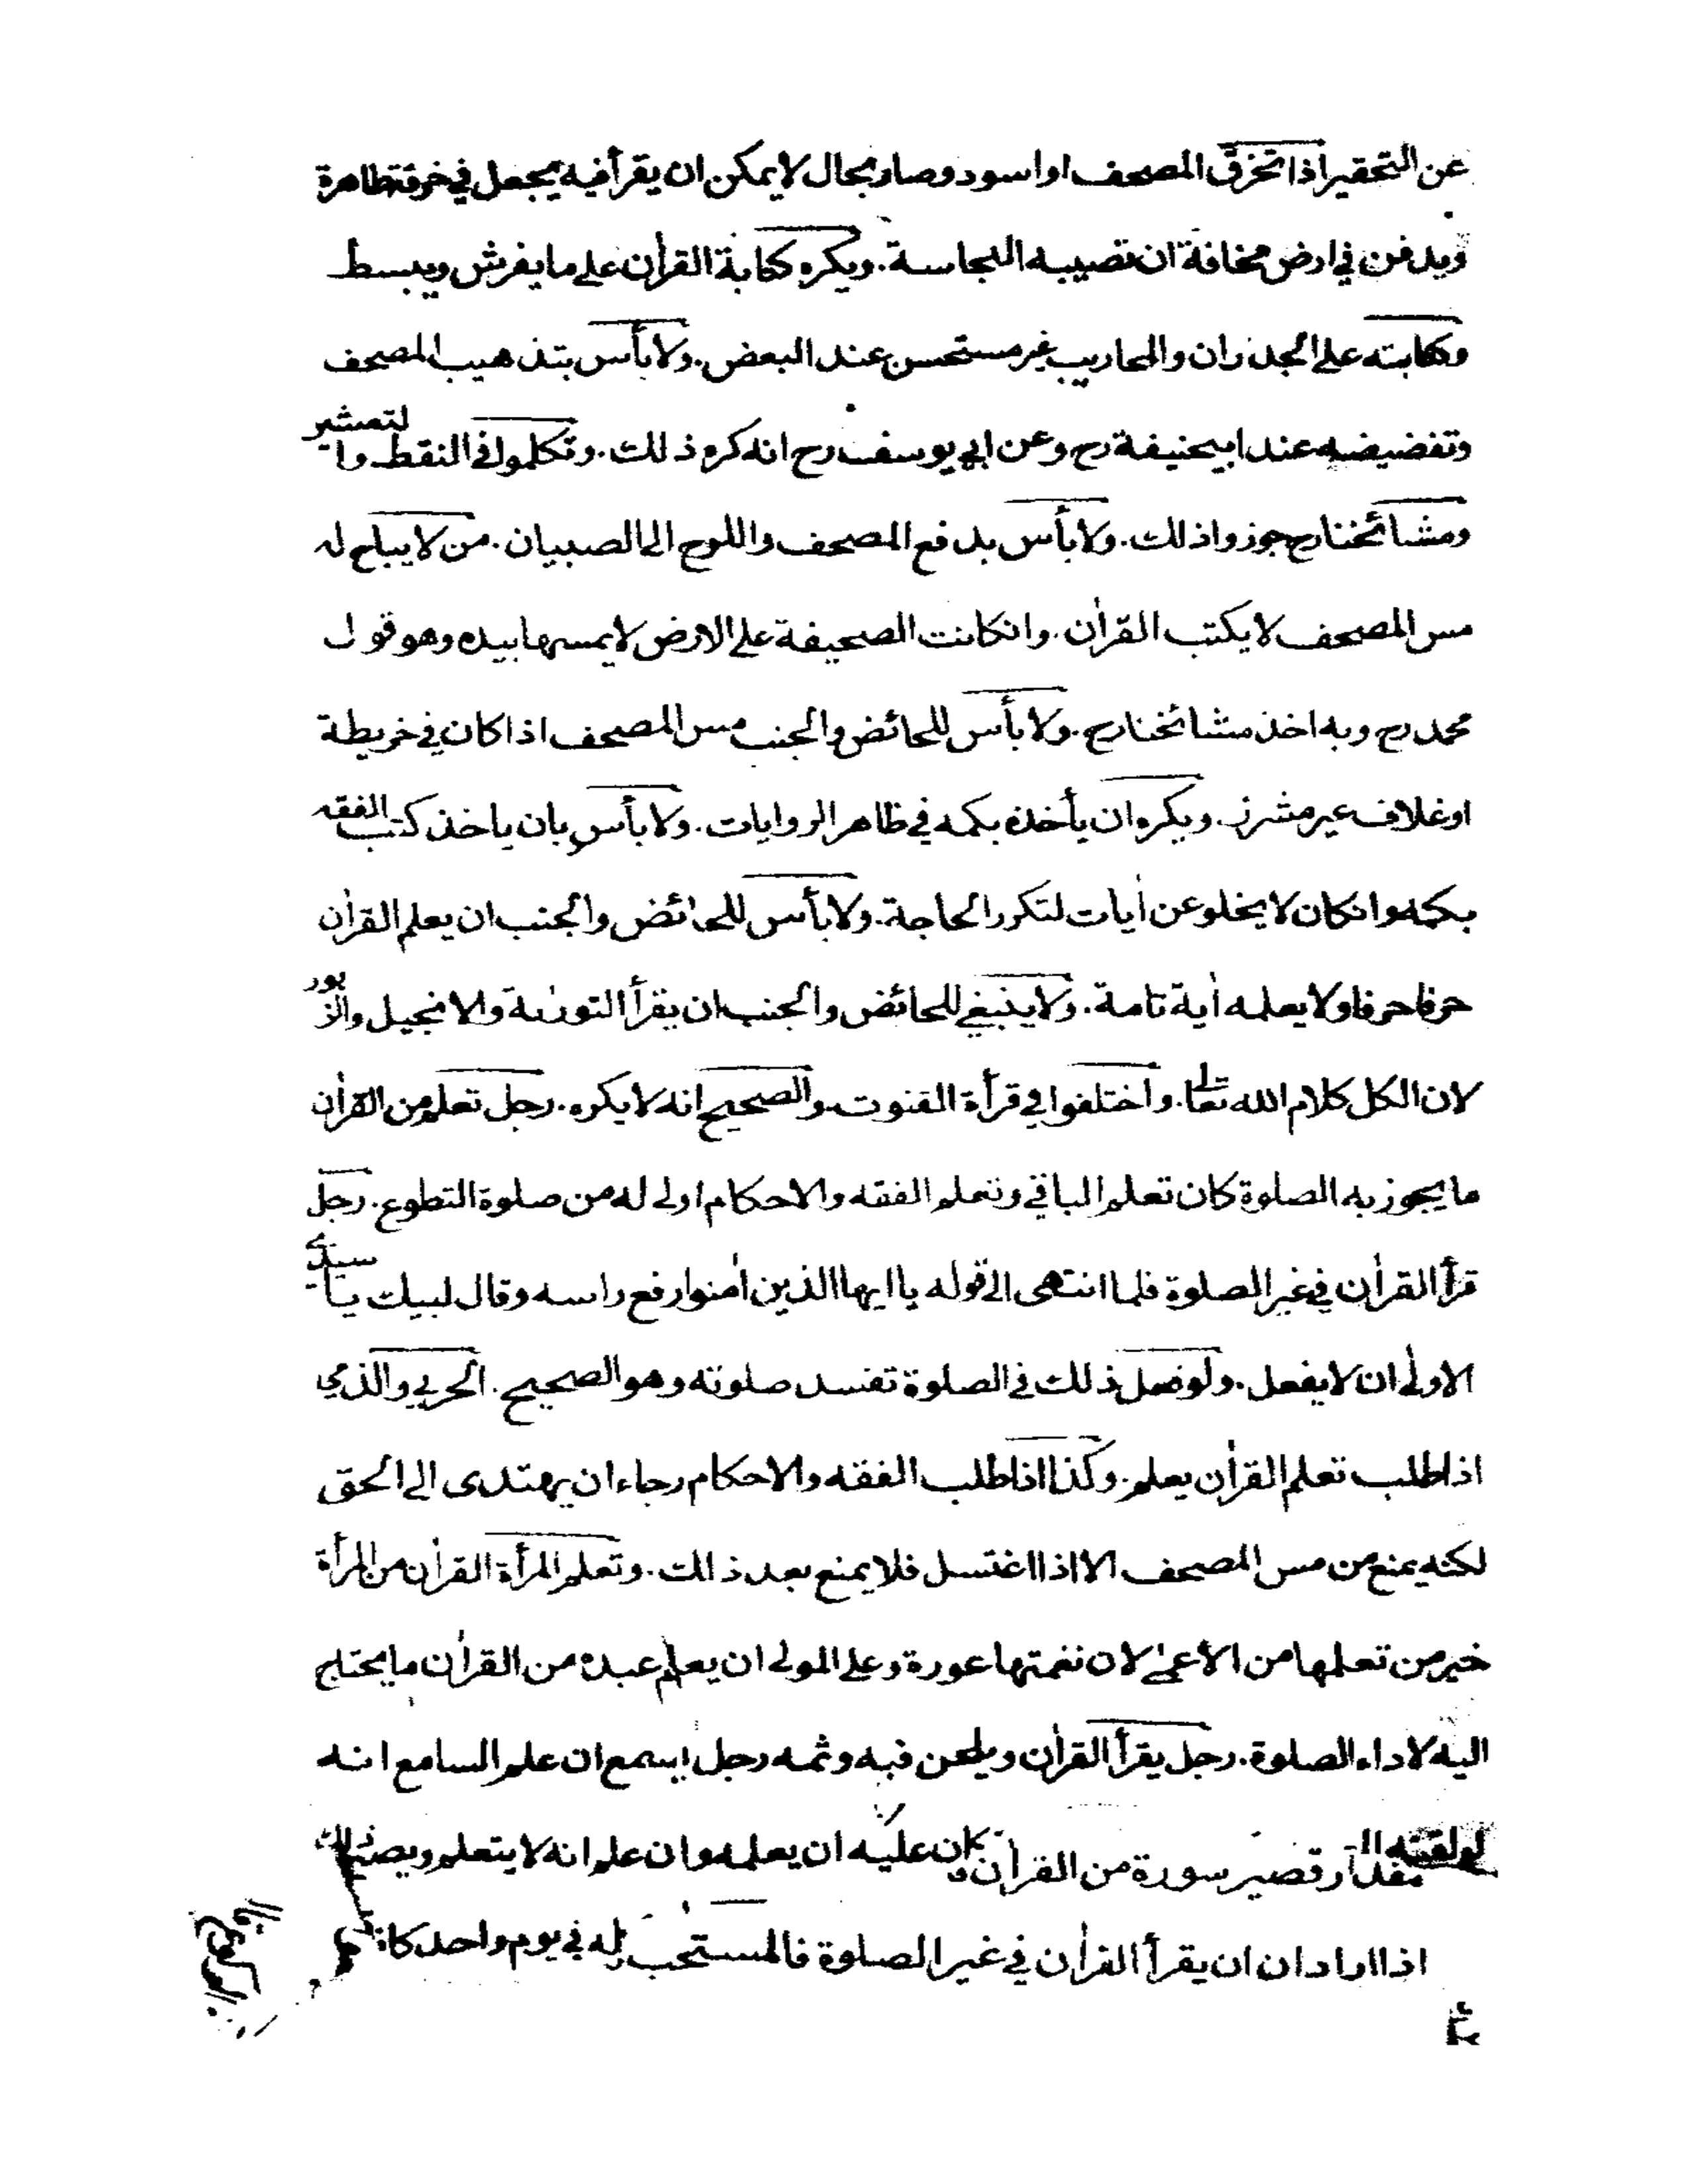 عن التحقير اذا تخرق المصحف او اسود وصار بحال لا يمكن ان يقرأ فيه يجعل في خرقة طاهرة
ويدفن في ارض مخافة ان تصيبه النجاسة. ويكره كتابة القرأن على ما يفرش ويبسط
وكتابته على الجدران والمحاريب غير مستحسن عند البعض. ولا بأس بتذهيب المصحف
وتفضيضه عند ابيحنيفة رح وعن ابي يوسف رح انه كره ذلك. وتكلموا في النقط والتعشير
ومشائخنا رح جوزوا ذلك. ولا بأس بدفع المصحف واللوح الى الصبيان. من لا يباح له
مس المصحف لا يكتب القرأن. وانكانت الصحيفة على الارض لا يمسها بيده وهو قول
محمد رح وبه اخذ مشائخنا رح. ولا بأس للحائض والجنب مس المصحف اذا كان في خريطة
او غلاف غير مشرز. ويكره ان يأخذه بكمه في ظاهر الروايات. ولا بأس بان ياخذ كتب الفقه
بكمه وانكان لا يخلو عن أيات لتكرر الحاجة. ولا بأس للحائض والجنب ان يعلم القرأن
حرفا حرفا ولا يعلمه أية تامة. ولا ينبغي للحائض والجنب ان يقرأ التورىة والانجيل والزبور
لان الكل كلام الله تعالى. واختلفوا في قرأة القنوت. والصحيح انه لا يكره. رجل تعلم من القرأن
ما يجوز به الصلوة كان تعلم الباقي وتعلم الفقه والاحكام اولى له من صلوة التطوع. رجل
قرأ القرأن في غير الصلوة فلما انتهى الى قوله يا ايها الذين أمنوا رفع راسه وقال لبيك يا سيدي
الاولى ان لا يفعل. ولو فعل ذلك في الصلوة تفسد صلوته وهو الصحيح. الحربي والذمي
اذا طلب تعلم القرأن يعلم. وكذا اذا طلب الفقه والاحكام رجاء ان يهتدى الى الحق
لكنه يمنع من مس المصحف الا اذا اغتسل فلا يمنع بعد ذلك. وتعلم المرأة القرأن من المرأة
خير من تعلمها من الأعمى لان نغمتها عورة وعلى المولى ان يعلم عبده من القرأن ما يحتاج
اليه لاداء الصلوة. رجل يقرأ القرأن ويلحن فيه وثمه رجل يسمع ان علم السامع انه
لو لقنه مقدار قصير سورة من القرأن كان عليه ان يعلمه وان علم انه لا يتعلم
اذا اراد ان يقرأ القرأن في غير الصلوة فالمستحب له في يوم واحد